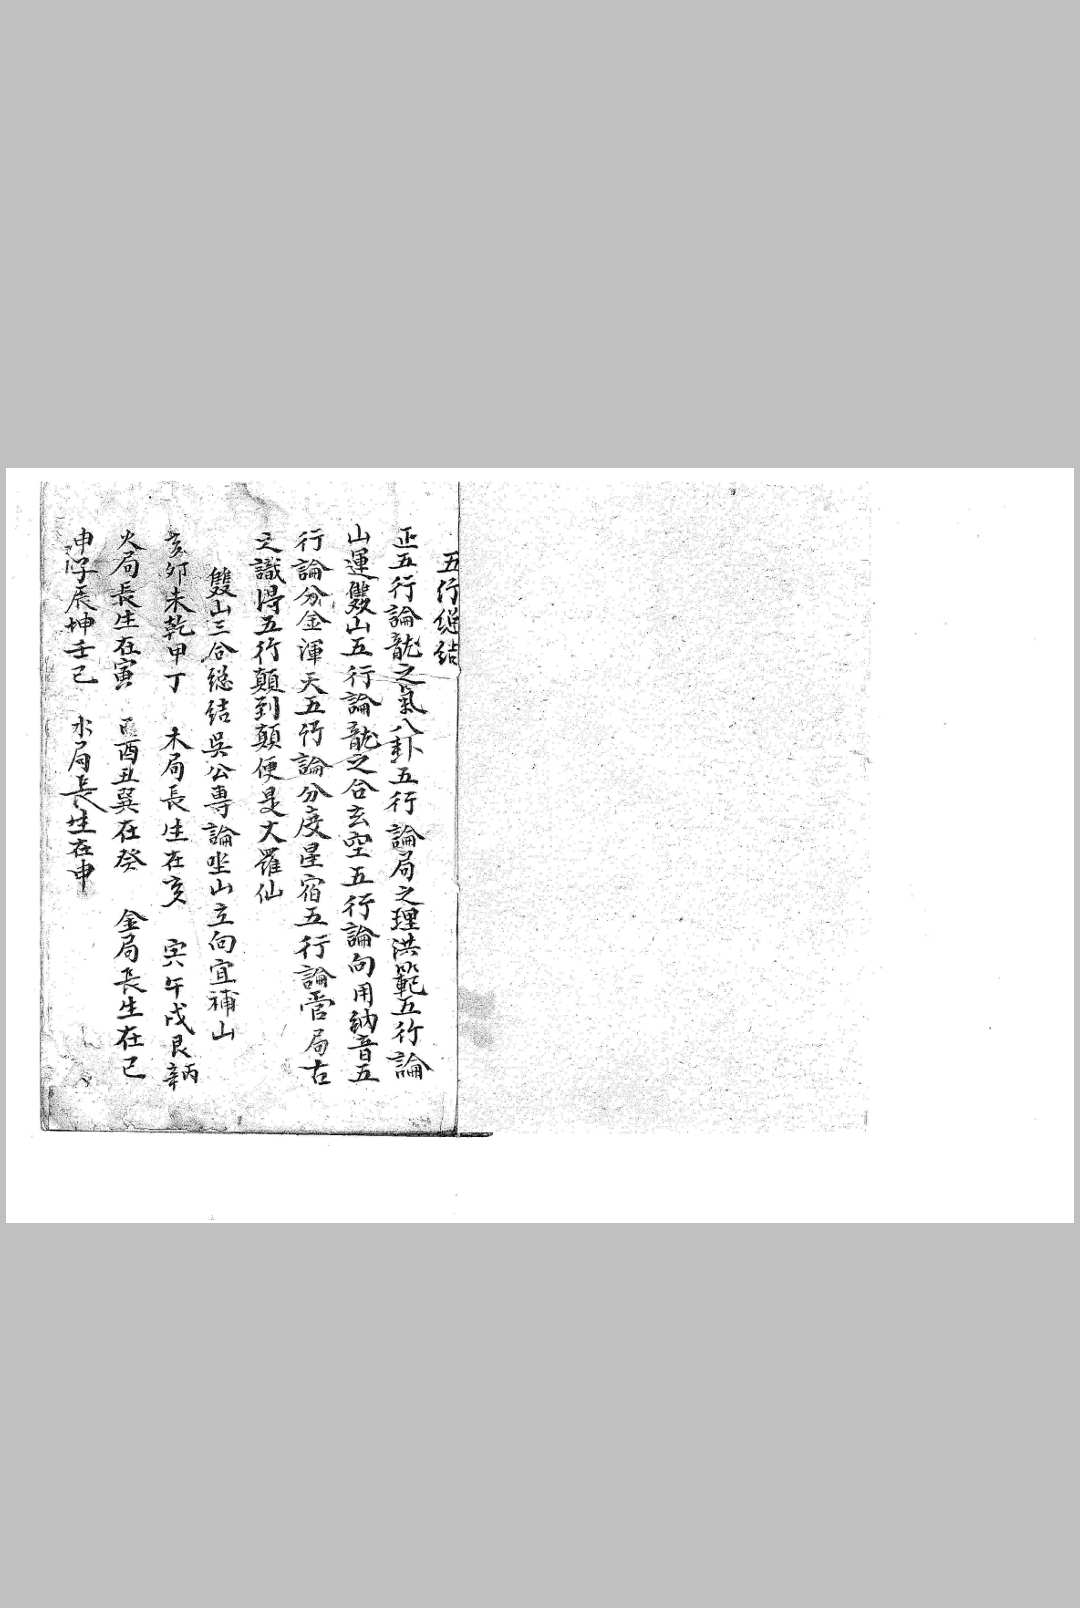 五行総結
正五行論龍之氣八卦五行論局之理洪範五行論
山運雙山五行論龍之合玄空五行論向用納音五
行論分金渾天五行論分度星宿五行論營局古
之識得五行顛到顛便是大羅仙
雙山三合総結吳公專論坐山立向宜補山
亥卯未乾甲丁 木局長生在亥 寅午戌艮辛丙
火局長生在寅 酉丑巽在癸 金局長生在己
申子辰坤壬己 水局長生在申